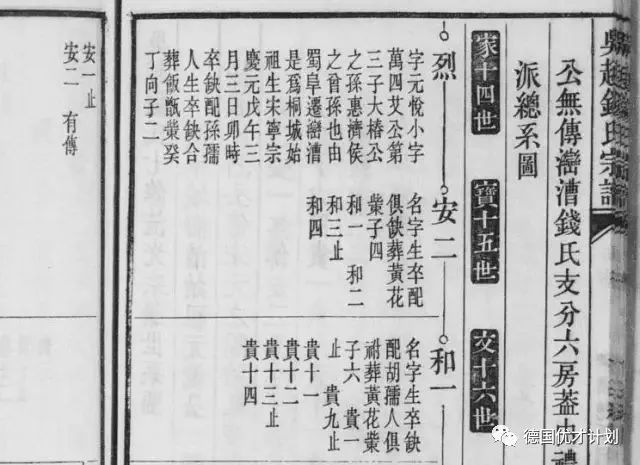 吳越錢氏宗譜
公無傳灣漕錢氏支分六房葢
派總系圖
家十四世
寶十五世
文十六世
烈
字元悅小字
萬四艾公第
三子大椿公
之孫惠濟侯
之曾孫也由
蜀阜遷灣漕
是爲桐城始
祖生宋寧宗
慶元戊午三
月三日卯時
卒缺配孫孺
人生卒缺合
葬飯甑癸
丁向子二
安一止
安二 有傳
安二
名字生卒配
俱缺葬黃花
子四
和一 和二
和三止
和四
和一
名字生卒缺
配胡孺人俱
祔葬黃花
子六 貴一
止 貴九止
貴十一
貴十二
貴十三止
貴十四
德国优才计划